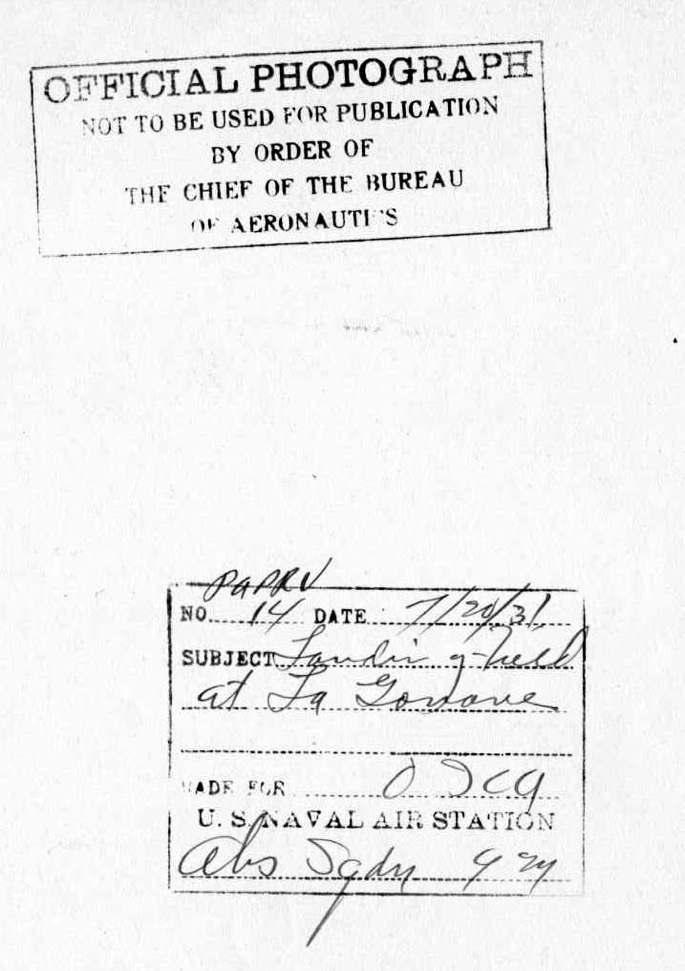 OFFICIAL PHOTOGRAPH
NOT TO BE USED FOR PUBLICATION
BY ORDER OF
THE CHIEF OF THE BUREAU
OF AERONAUTICS
NO. 14 DATE 7/20/31
SUBJECT Landing field
at La Gonave
MADE FOR
U. S. NAVAL AIR STATION
Obs Sqdn 9 M